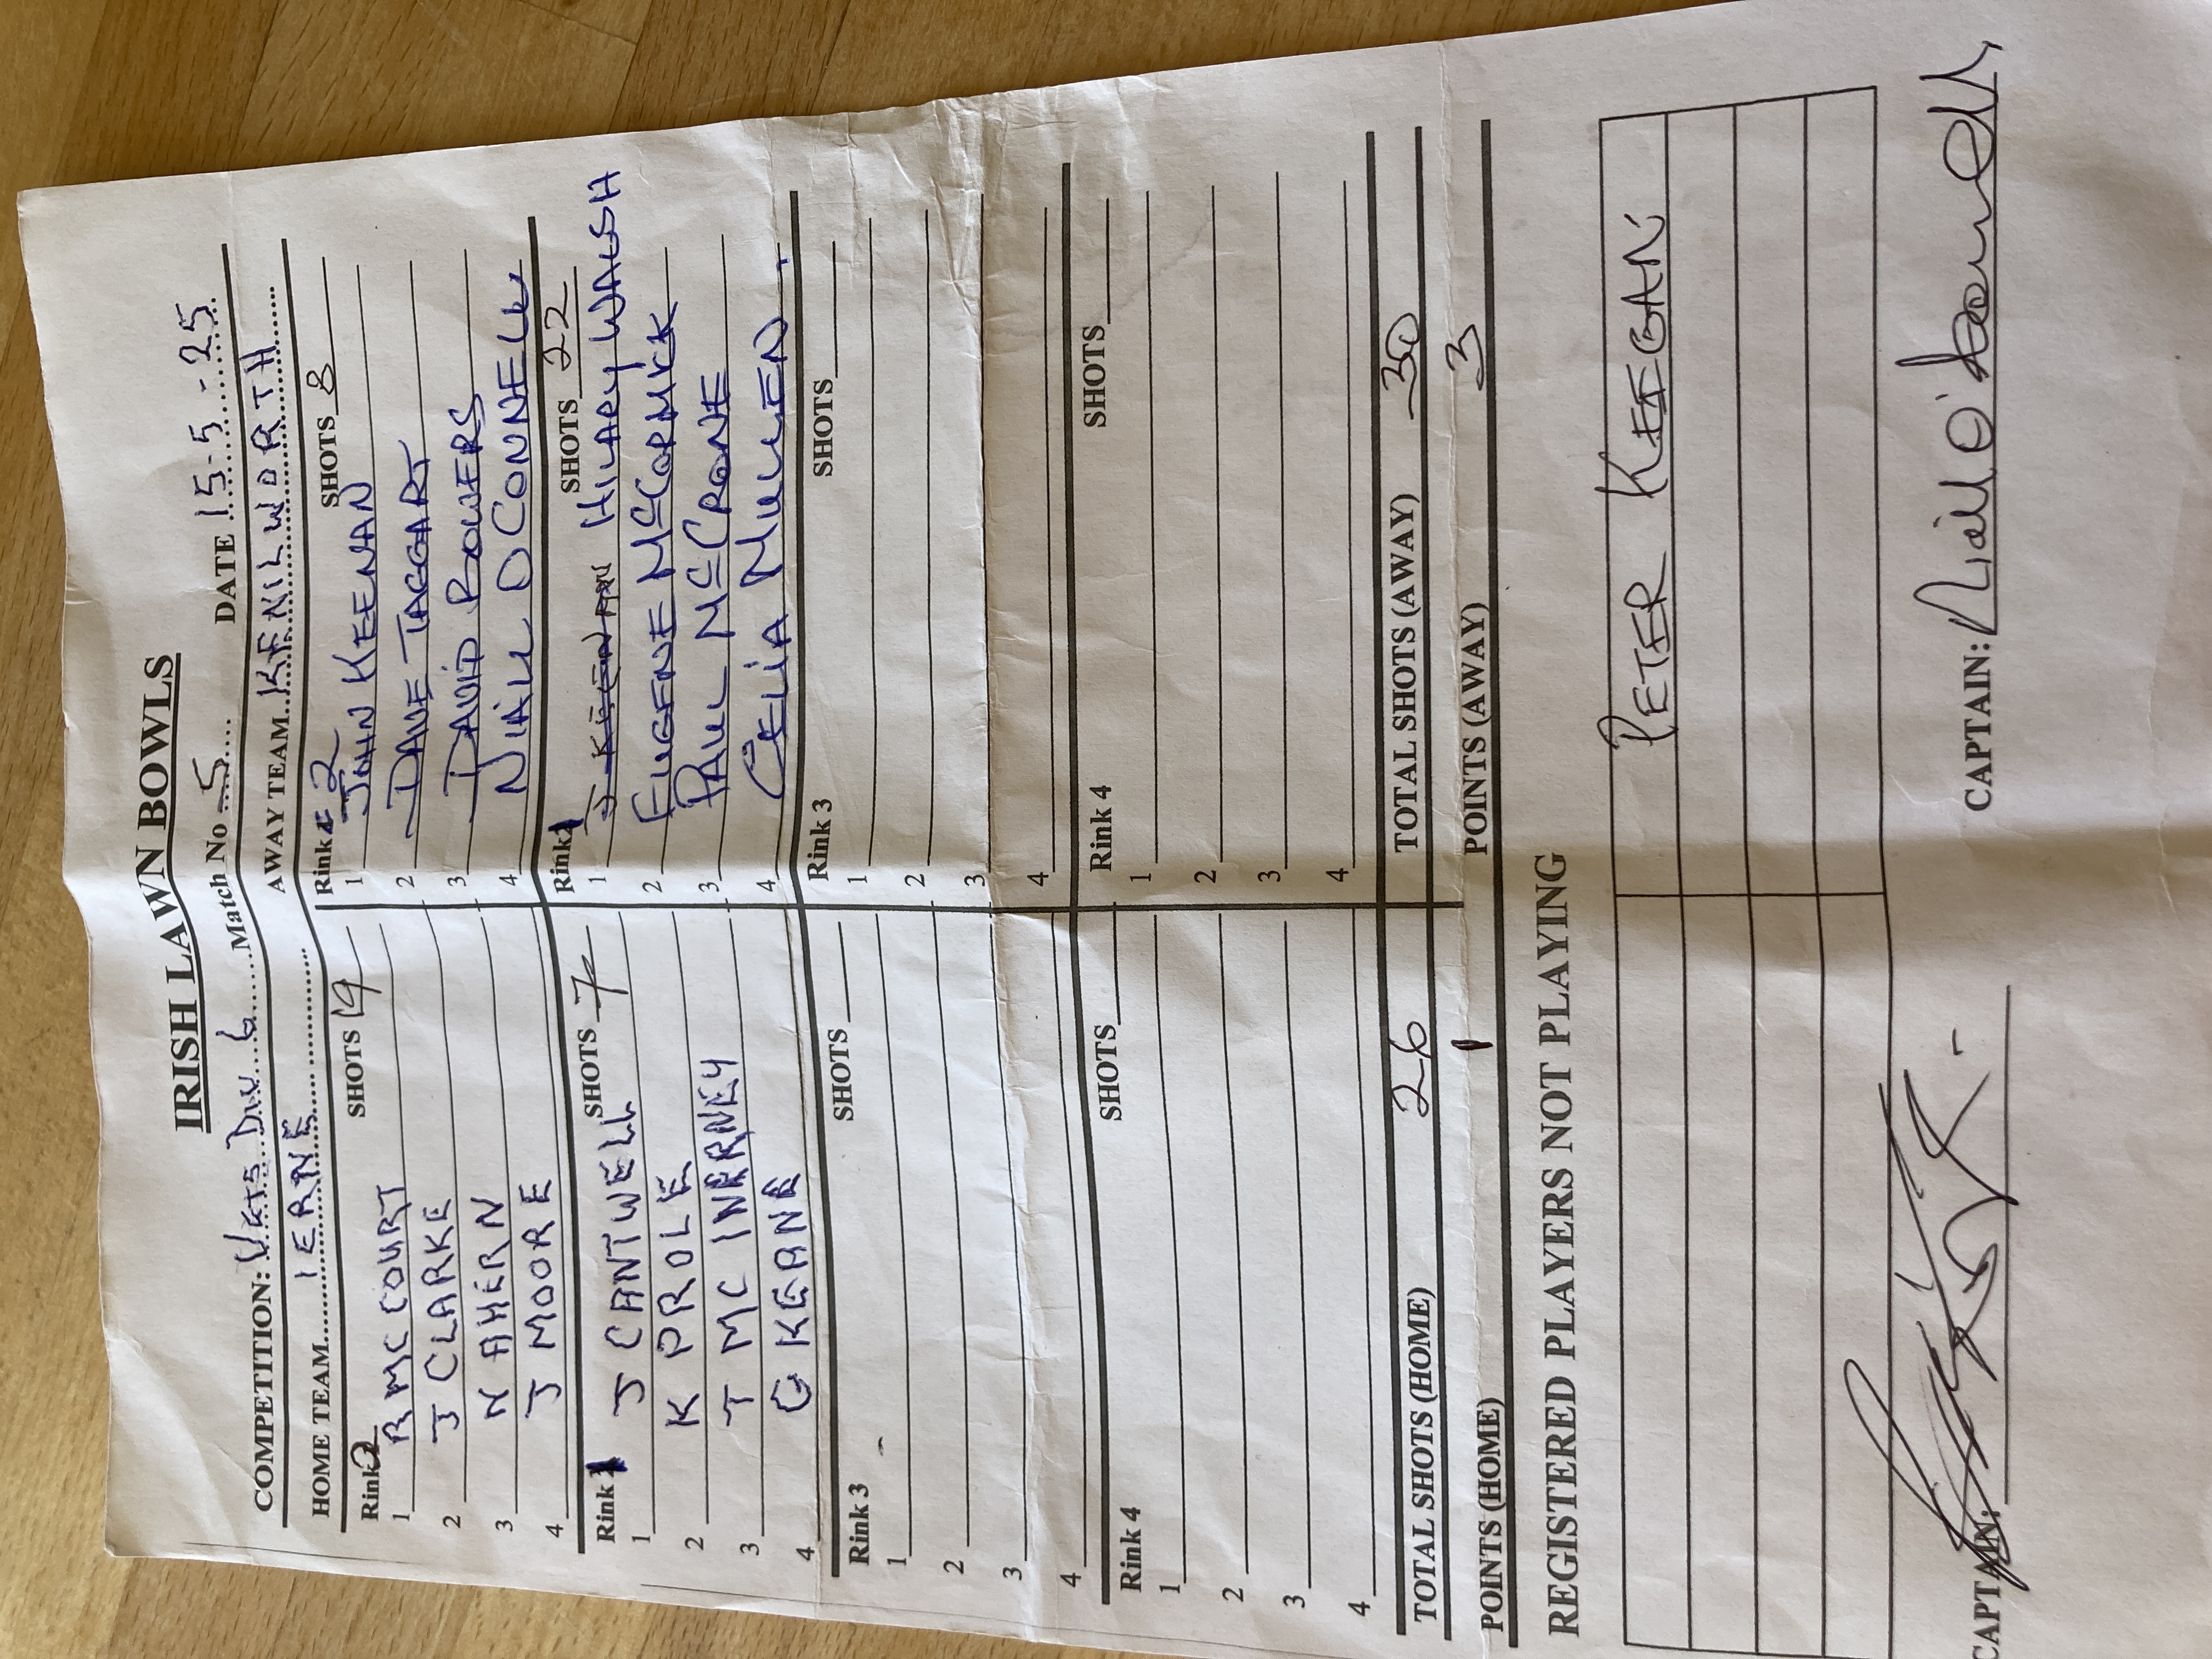 IRISH LAWN BOWLS
COMPETITION: VETS DIV 6 Match No 5 DATE 15-5-25
HOME TEAM IERNE AWAY TEAM KENILWORTH
Rink 2 SHOTS 19 Rink 2 SHOTS 8
1 R MC COURT 1 JOHN KEENAN
2 J CLARKE 2 DAVE TAGGART
3 N AHERN 3 DAVID BOWERS
4 J MOORE 4 NIALL O CONNELL
Rink 1 SHOTS 7 Rink 1 SHOTS 22
1 J CANTWELL 1 J KEENAN HILARY WALSH
2 K PROLE 2 EUGENE MCCORMICK
3 T MC INERNEY 3 PAUL MCCRONE
4 G KEANE 4 CELIA MULLEN
Rink 3 SHOTS Rink 3 SHOTS
1 1
2 2
3 3
4 4
Rink 4 SHOTS Rink 4 SHOTS
1 1
2 2
3 3
4 4
TOTAL SHOTS (HOME) 26 TOTAL SHOTS (AWAY) 30
POINTS (HOME) 1 POINTS (AWAY) 3
REGISTERED PLAYERS NOT PLAYING
PETER KEEGAN
CAPTAIN: CAPTAIN: Niall O'Connell